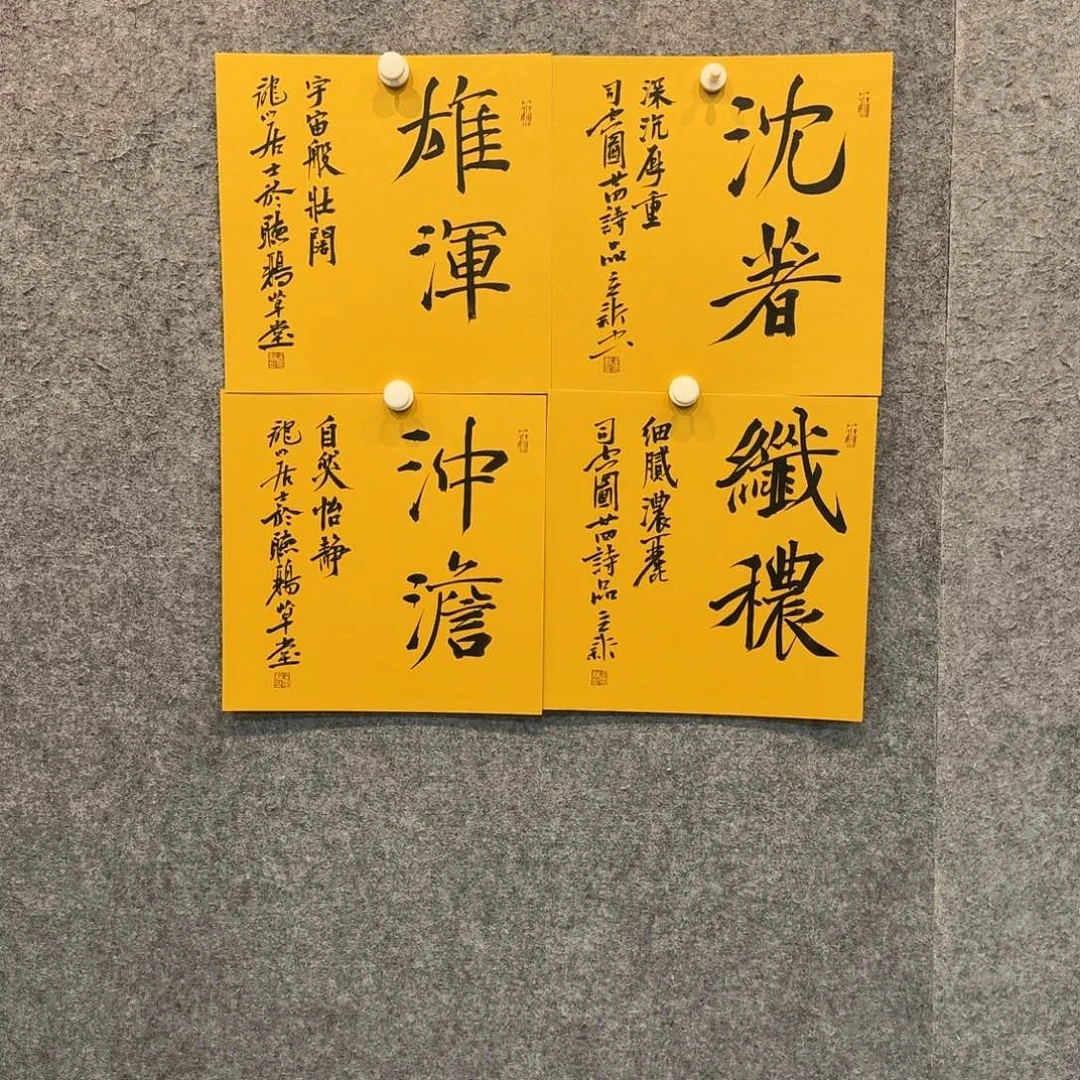 雄渾
宇宙般壯闊
龍山居士於聽鵝草堂
沈著
深沉厚重
司空圖廿四詩品之
沖澹
自然怡静
龍山居士於聽鵝草堂
纖穠
細膩濃麗
司空圖廿四詩品之